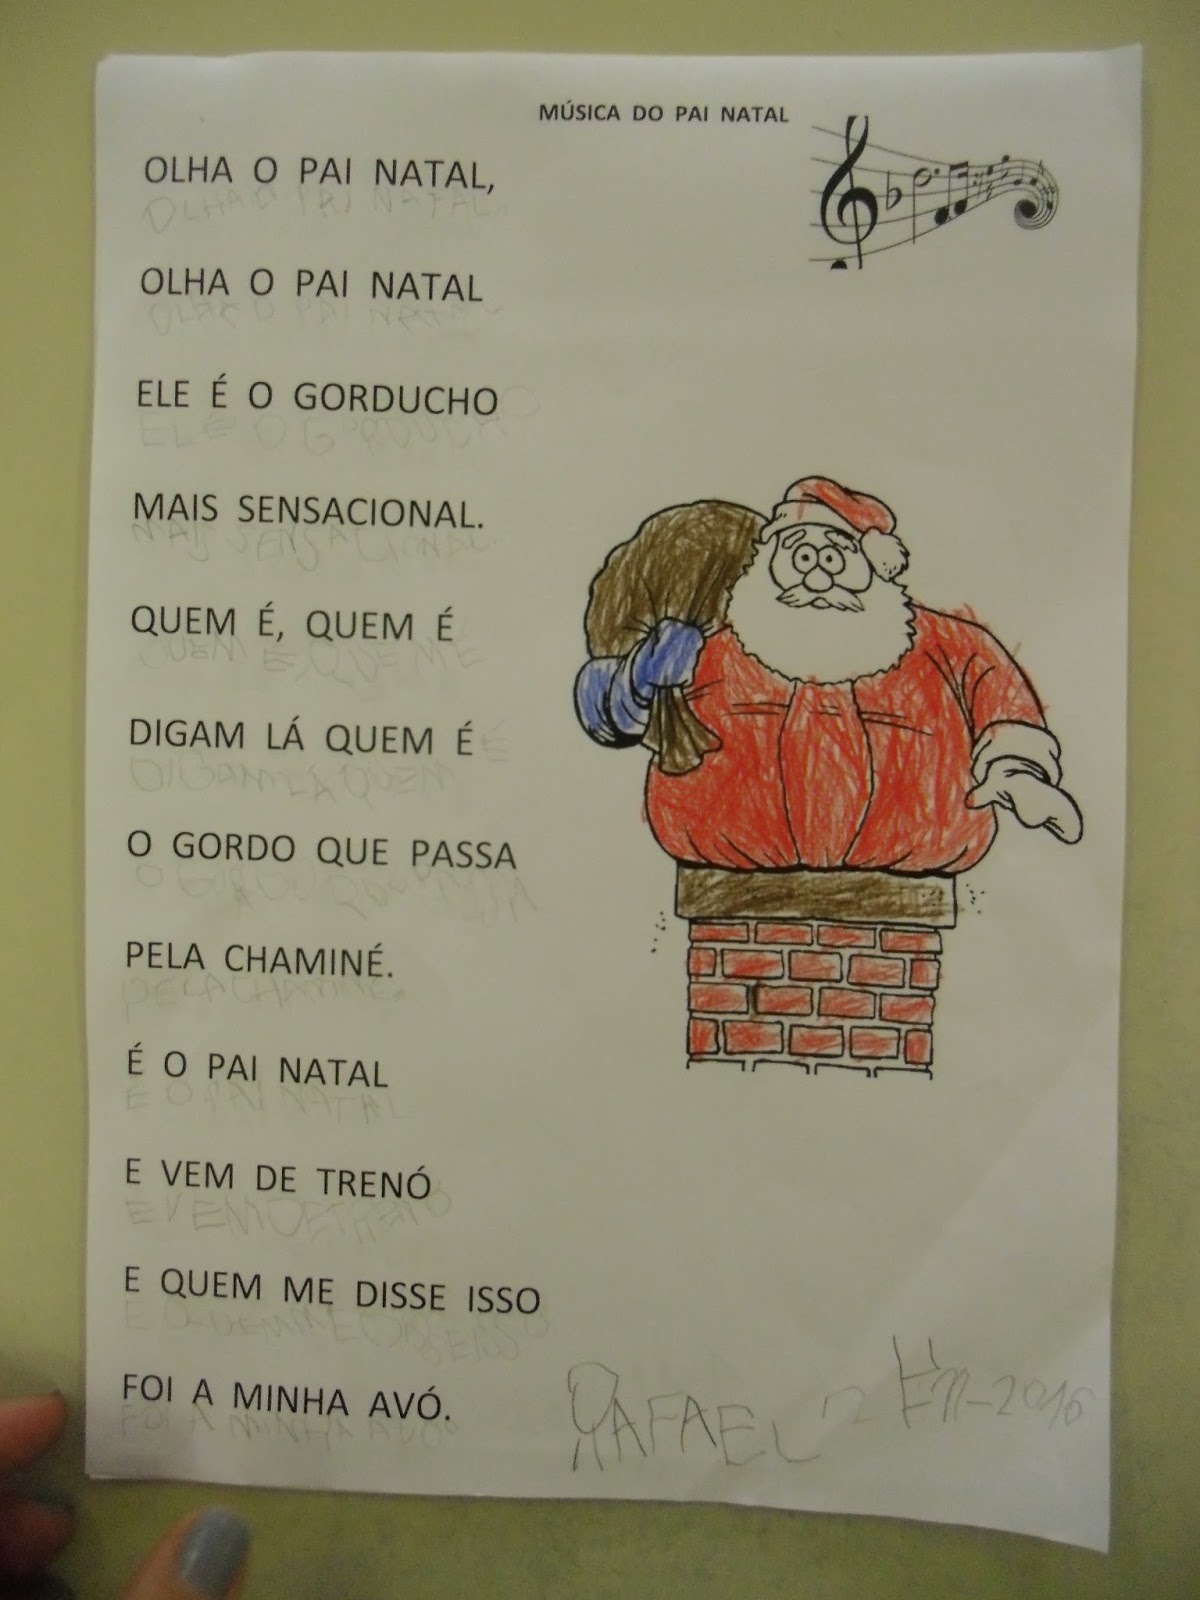 MÚSICA DO PAI NATAL
OLHA O PAI NATAL,
OLHA O PAI NATAL
OLHA O PAI NATAL
OLHA O PAI NATAL
ELE É O GORDUCHO
ELE O GORDUCHO
MAIS SENSACIONAL.
MAIS SENSACIONAL.
QUEM É, QUEM É
QUEM É, QUE ME
DIGAM LÁ QUEM É É
DIGAM LÁ QUEM
O GORDO QUE PASSA
PELA CHAMINÉ.
PELA CHAMINÉ.
É O PAI NATAL
É O PAI NATAL
E VEM DE TRENÓ
E VEM DE TRENÓ
E QUEM ME DISSE ISSO
FOI A MINHA AVÓ.
FOI A MINHA AVÓ.
RAFAEL